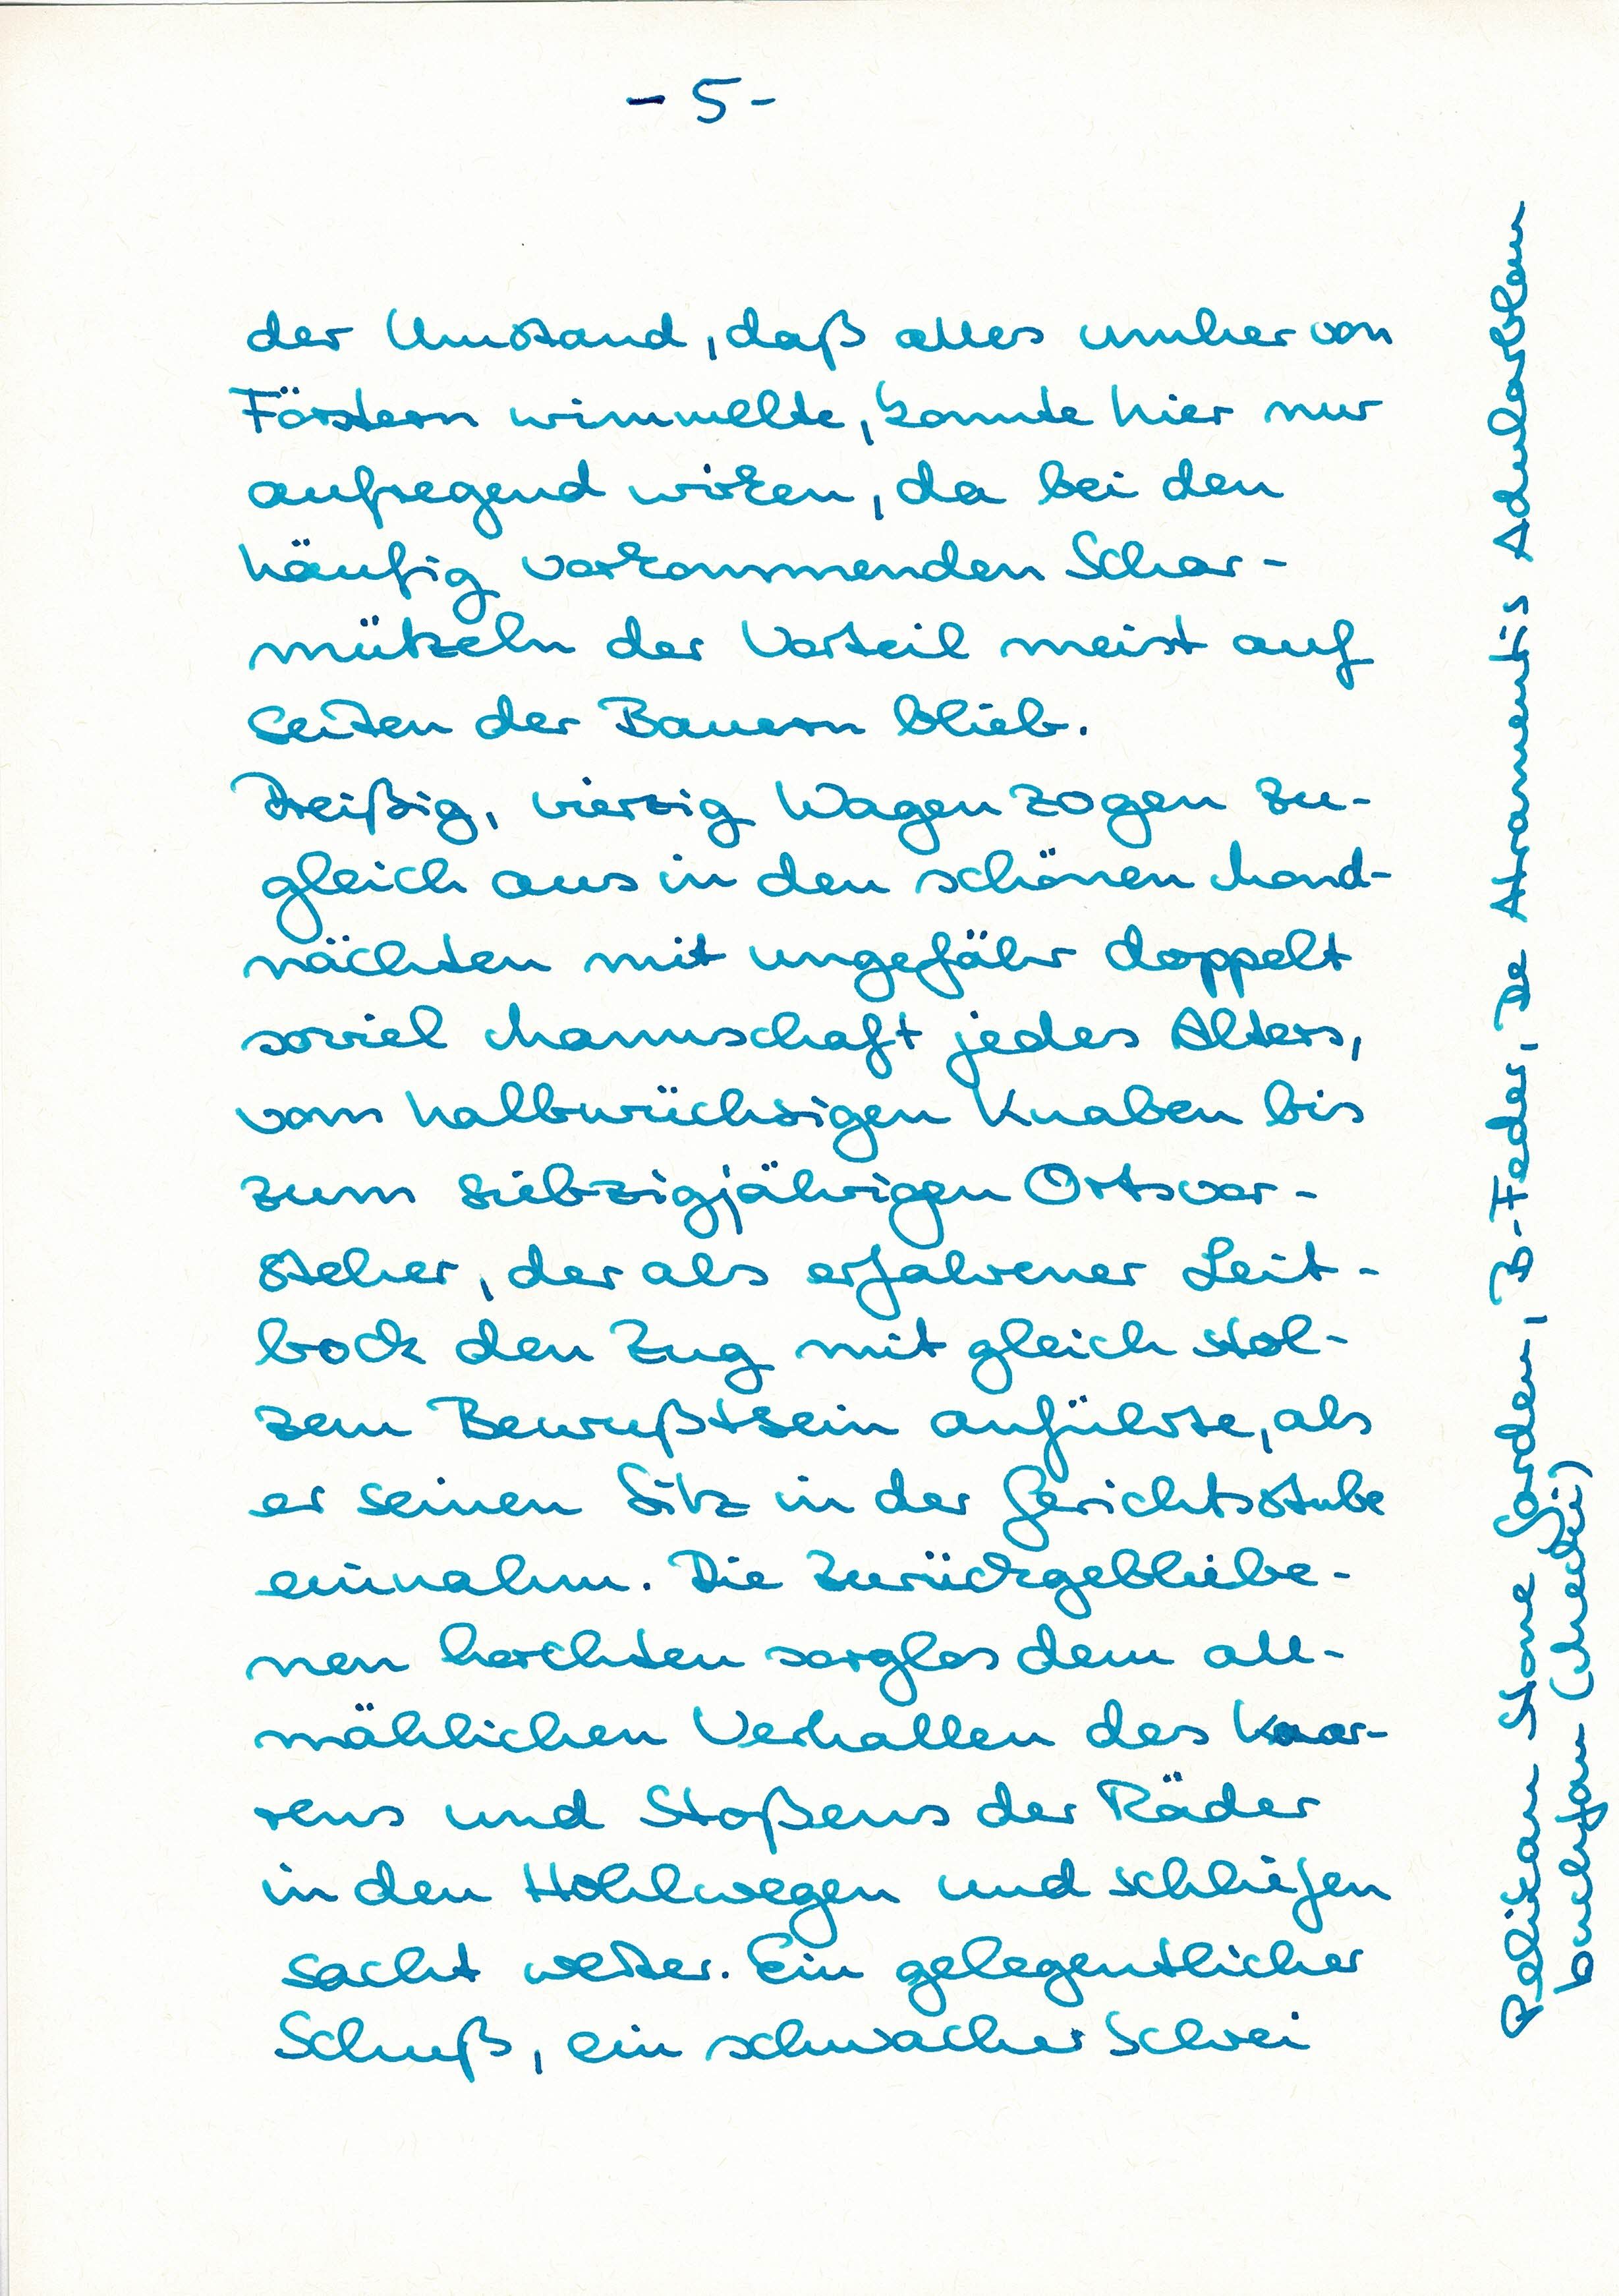 - 5 -
der Umstand, daß alles umher von
Förstern wimmelte, konnte hier nur
aufregend wirken, da bei den
häufig vorkommenden Schar-
mützeln der Vorteil meist auf
Seiten der Bauern blieb.
Dreißig, vierzig Wagen zogen zu-
gleich aus in den schönen Mond-
nächten mit ungefähr doppelt
soviel Mannschaft jedes Alters,
vom halbwüchsigen Knaben bis
zum siebzigjährigen Ortsvor-
steher, der als erfahrener Leit-
bock den Zug mit gleich stol-
zem Bewußtsein anführte, als
er seinen Sitz in der Gerichtsstube
einnahm. Die Zurückgebliebe-
nen horchten sorglos dem all-
mählichen Verhallen des Knar-
rens und Stoßens der Räder
in den Hohlwegen und schliefen
sacht weiter. Ein gelegentlicher
Schuß, ein schwacher Schrei
Pelikan Stone Garden, B-Feder, De Atramentis Adularblau
buchfan (Medii)